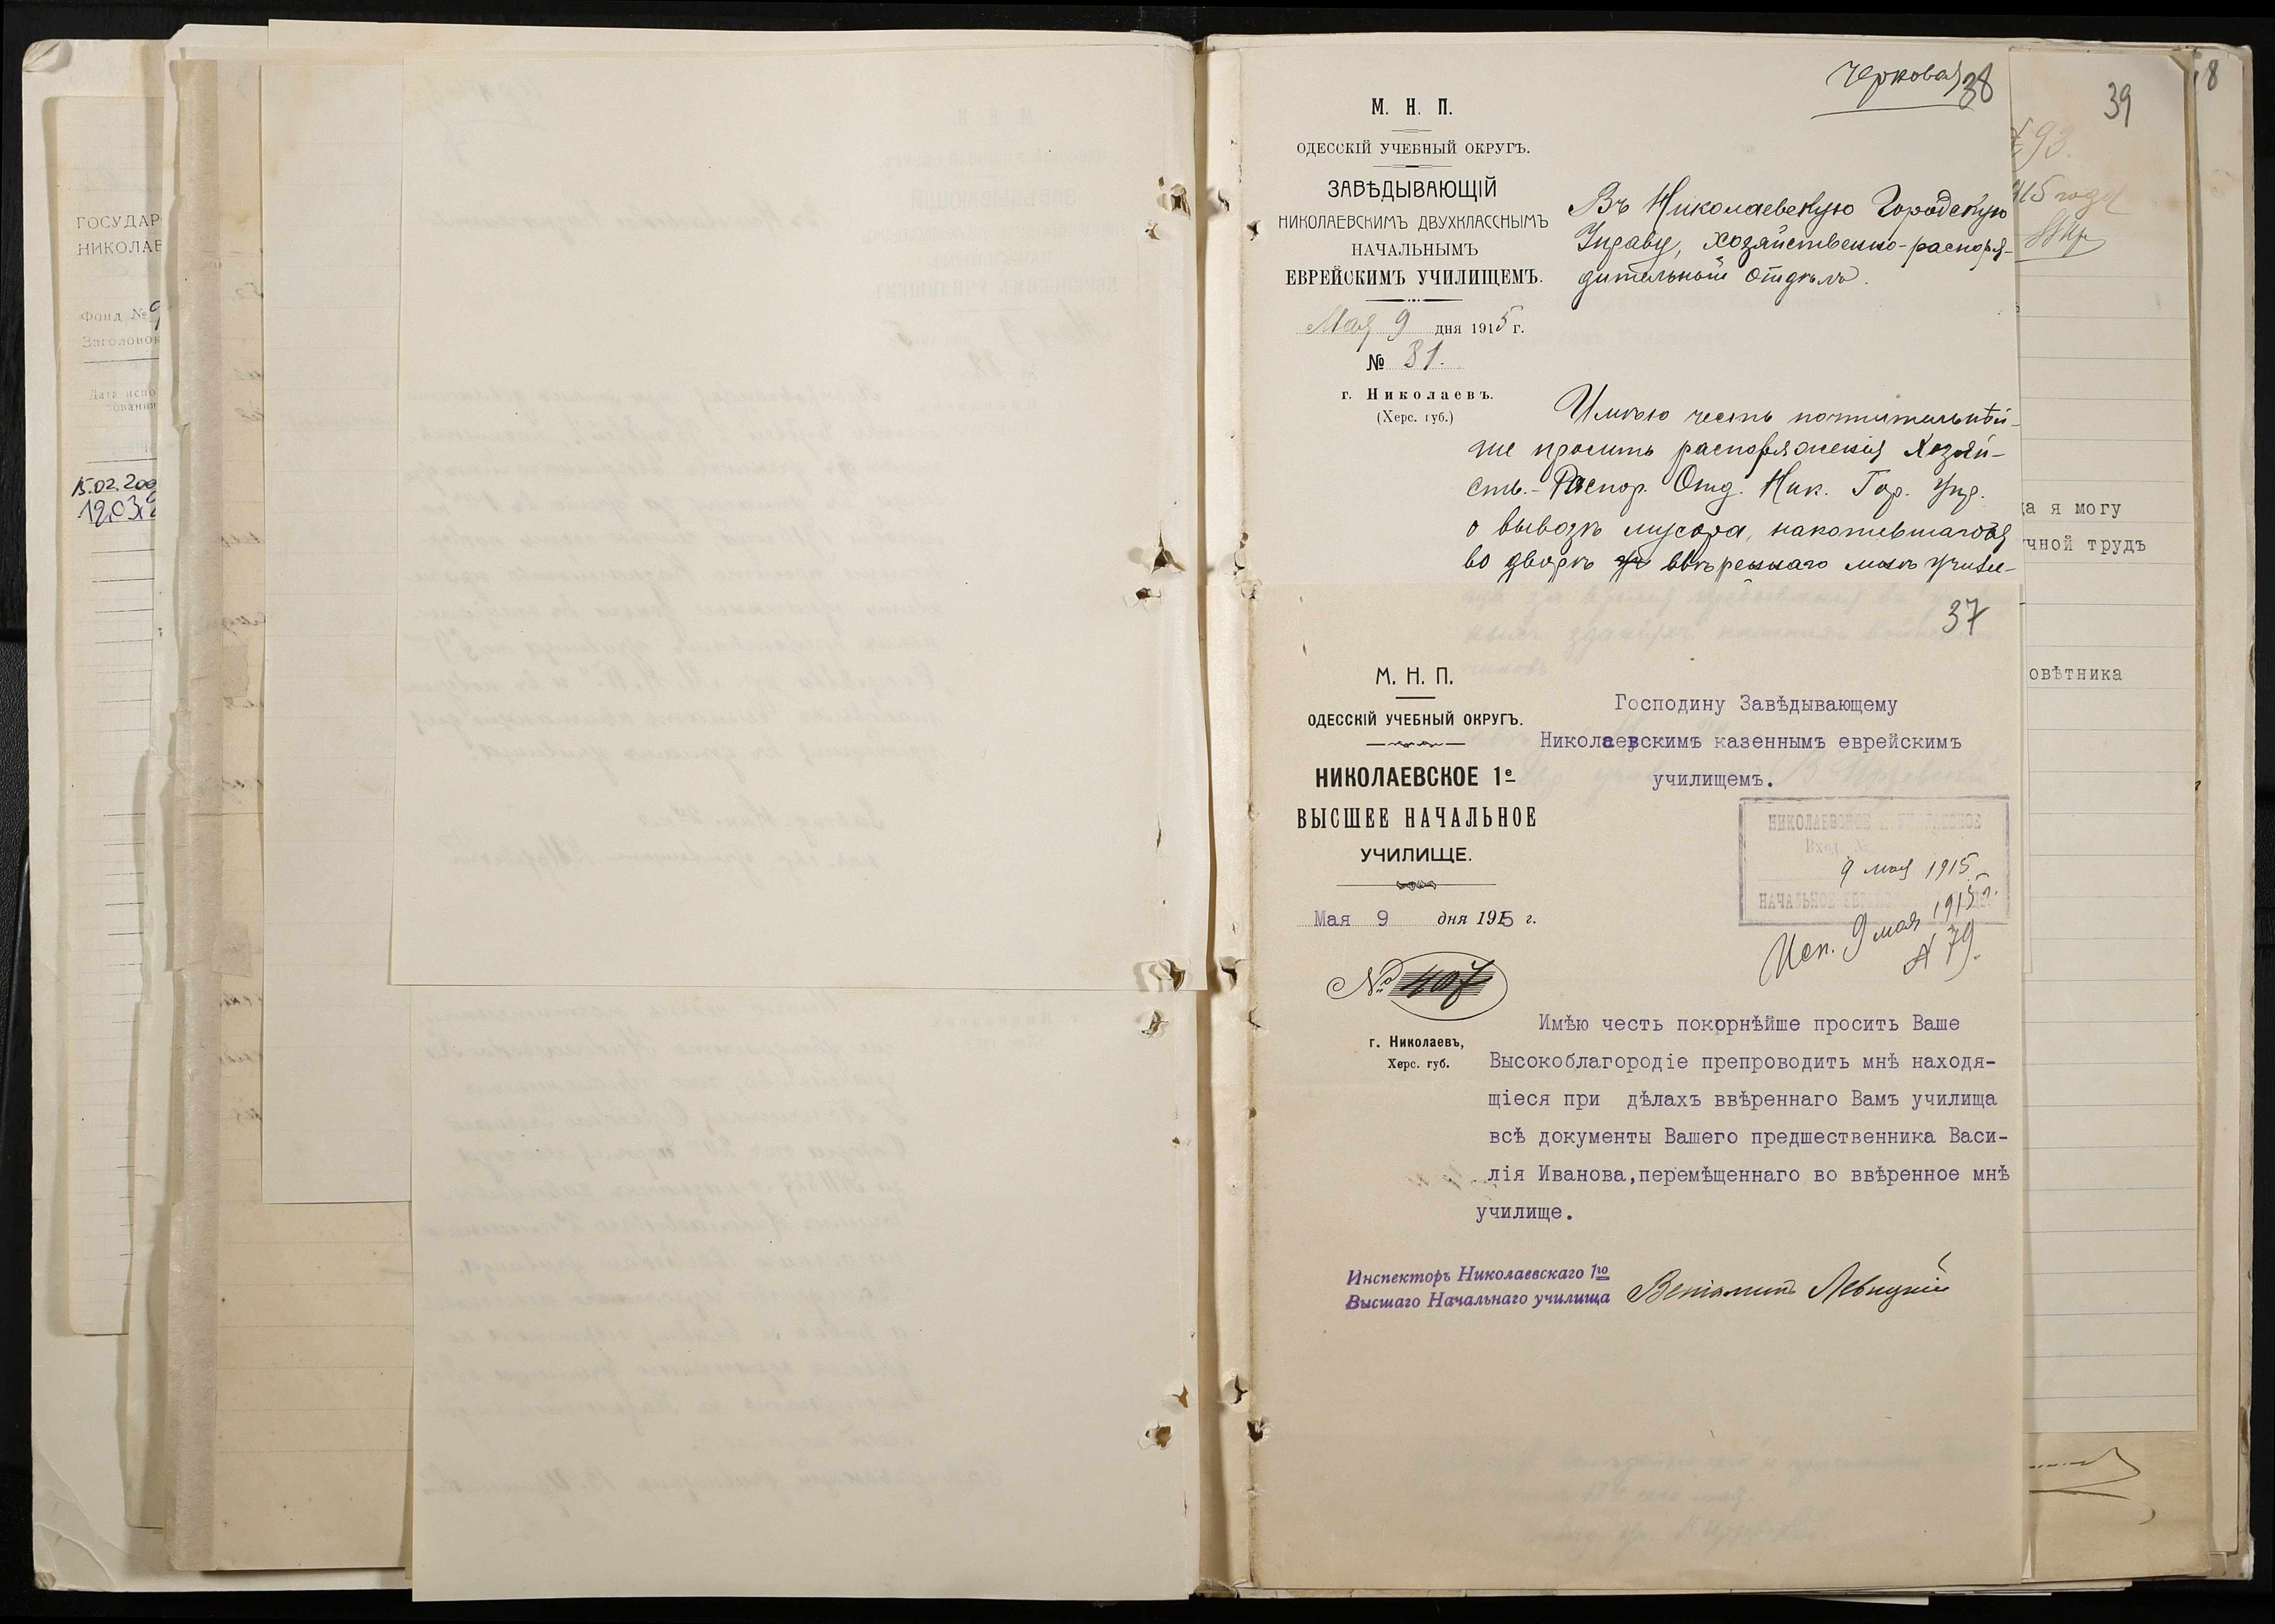 ГОСУДАР
НИКОЛАЕ
Фонд № 9
Заголовок
Дата испо
зования
15.02.200
19.03.2
Черковая
38
М. Н. П.
ОДЕССКІЙ УЧЕБНЫЙ ОКРУГЪ.
ЗАВѢДЫВАЮЩІЙ
НИКОЛАЕВСКИМЪ ДВУХКЛАССНЫМЪ
НАЧАЛЬНЫМЪ
ЕВРЕЙСКИМЪ УЧИЛИЩЕМЪ.
Мая 9 дня 1915 г.
№ 81.
г. Николаевъ.
(Херс. губ.)
Въ Николаевскую Городскую
Управу, хозяйственно-распоря-
дительный отдѣлъ.
Имѣю честь почтительнѣй-
ше просить распоряженія Хозяй-
ств.-Распор. Отд. Ник. Гор. Упр.
о вывозѣ мусора, накопившагося
во дворѣ ввѣреннаго мнѣ учили-
37
М. Н. П.
ОДЕССКІЙ УЧЕБНЫЙ ОКРУГЪ.
НИКОЛАЕВСКОЕ 1е
ВЫСШЕЕ НАЧАЛЬНОЕ
УЧИЛИЩЕ.
Мая 9 дня 1915 г.
№ 407
г. Николаевъ,
Херс. губ.
Господину Завѣдывающему
Николаевскимъ казеннымъ еврейскимъ
училищемъ.
Вход. №
9 мая 1915
Исп. 9 мая 1915 г.
№ 79.
Имѣю честь покорнѣйше просить Ваше
Высокоблагородіе препроводить мнѣ находя-
щіеся при дѣлахъ ввѣреннаго Вамъ училища
всѣ документы Вашего предшественника Васи-
лія Иванова,перемѣщеннаго во ввѣренное мнѣ
училище.
Инспекторъ Николаевскаго 1го
Высшаго Начальнаго училища
Веніаминъ Левицкій
39
93.
915 года
да я могу
чной трудъ
овѣтника
8